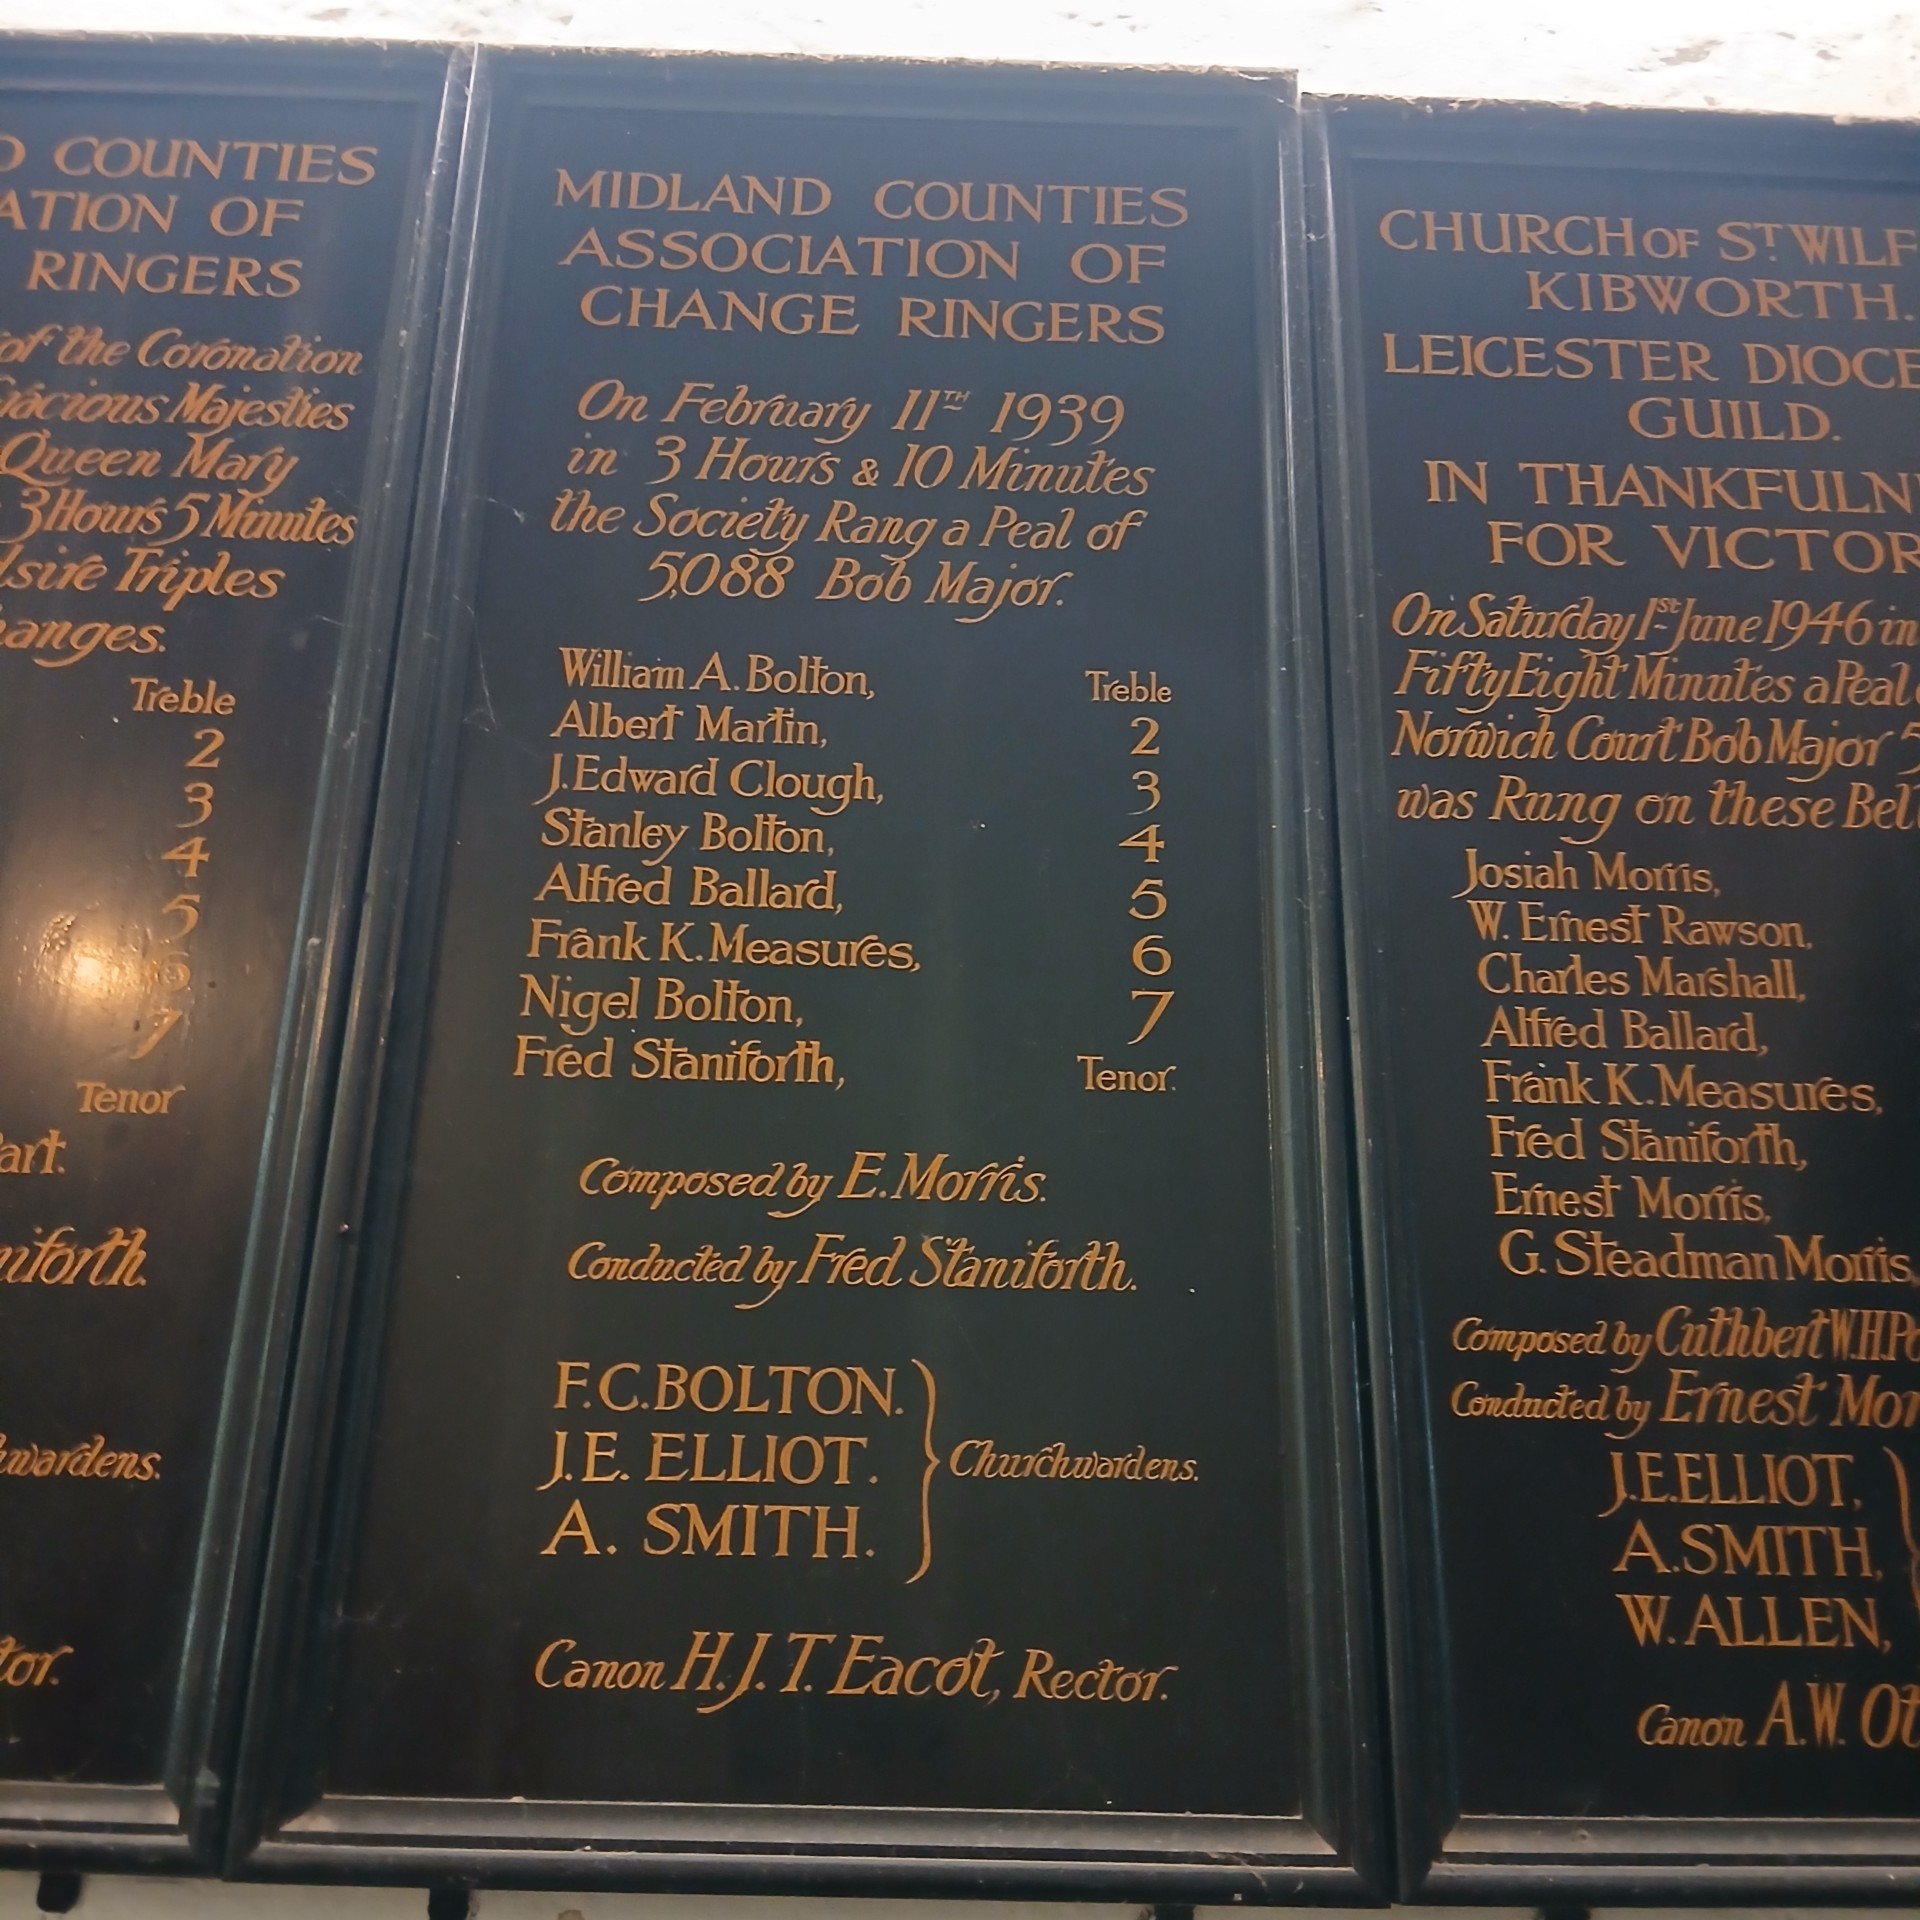 COUNTIES
OF
RINGERS
of the Coronation
Majesties
Queen Mary
3 Hours 5 Minutes
Triples
Treble
2
3
4
5
6
7
Tenor
MIDLAND COUNTIES
ASSOCIATION OF
CHANGE RINGERS
On February 11TH 1939
in 3 Hours & 10 Minutes
the Society Rang a Peal of
5,088 Bob Major.
William A. Bolton, Treble
Albert Martin, 2
J. Edward Clough, 3
Stanley Bolton, 4
Alfred Ballard, 5
Frank K. Measures, 6
Nigel Bolton, 7
Fred Staniforth, Tenor.
Composed by E. Morris.
Conducted by Fred Staniforth.
F.C. BOLTON.
J.E. ELLIOT.
A. SMITH.
Churchwardens.
Canon H.J.T. Eacot, Rector.
CHURCH OF ST WILF
KIBWORTH.
LEICESTER DIOCE
GUILD.
IN THANKFULN
FOR VICTOR
On Saturday 1st June 1946 in
Fifty Eight Minutes a Peal
Norwich Court Bob Major 5
was Rung on these Bel
Josiah Morris,
W. Ernest Rawson,
Charles Marshall,
Alfred Ballard,
Frank K. Measures,
Fred Staniforth,
Ernest Morris,
G. Steadman Morris,
Composed by Cuthbert W.H.P
Conducted by Ernest Mor
J.E. ELLIOT,
A. SMITH,
W. ALLEN,
Canon A.W. Ot